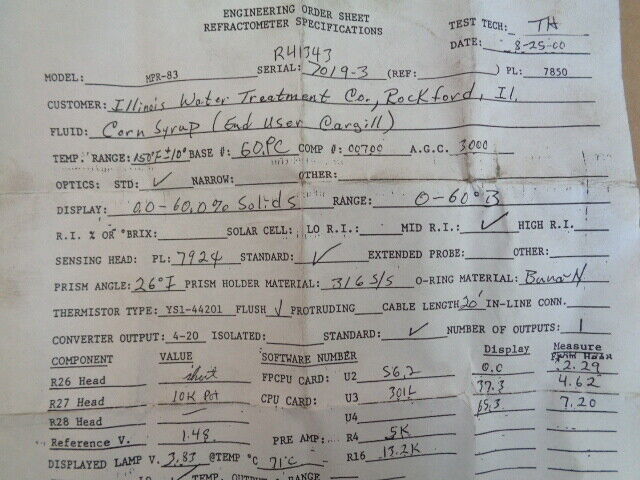 ENGINEERING ORDER SHEET
REFRACTOMETER SPECIFICATIONS
TEST TECH: TH
DATE: 8-25-00
R41343
MODEL: MPR-83 SERIAL: 7019-3 (REF: ) PL: 7850
CUSTOMER: Illinois Water Treatment Co., Rockford, Il.
FLUID: Corn Syrup (End User Cargill)
TEMP. RANGE: 150°F±10° BASE #: 60.PC COMP #: 00700 A.G.C. 3000
OPTICS: STD: ✓ NARROW: OTHER:
DISPLAY: 00.0-60.0% Solids RANGE: 0-60°B
R.I. % OR °BRIX: SOLAR CELL: LO R.I.: MID R.I.: ✓ HIGH R.I.
SENSING HEAD: PL: 7924 STANDARD: ✓ EXTENDED PROBE: OTHER:
PRISM ANGLE: 26°I PRISM HOLDER MATERIAL: 316 S/S O-RING MATERIAL: Buna-N
THERMISTOR TYPE: YS1-44201 FLUSH ✓ PROTRUDING CABLE LENGTH 20' IN-LINE CONN.
CONVERTER OUTPUT: 4-20 ISOLATED: STANDARD: ✓ NUMBER OF OUTPUTS: 1
COMPONENT VALUE SOFTWARE NUMBER Display Measure
From Head
R26 Head short FPCPU CARD: U2 56.2 0.0 2.29
R27 Head 10K Pot CPU CARD: U3 301L 37.3 4.62
R28 Head — U4 7.20
Reference V. 1.48 PRE AMP: R4 5K
DISPLAYED LAMP V. 3.83 @TEMP °C 71°C R16 13.2K
TEMP. OUTPUT - RANGE